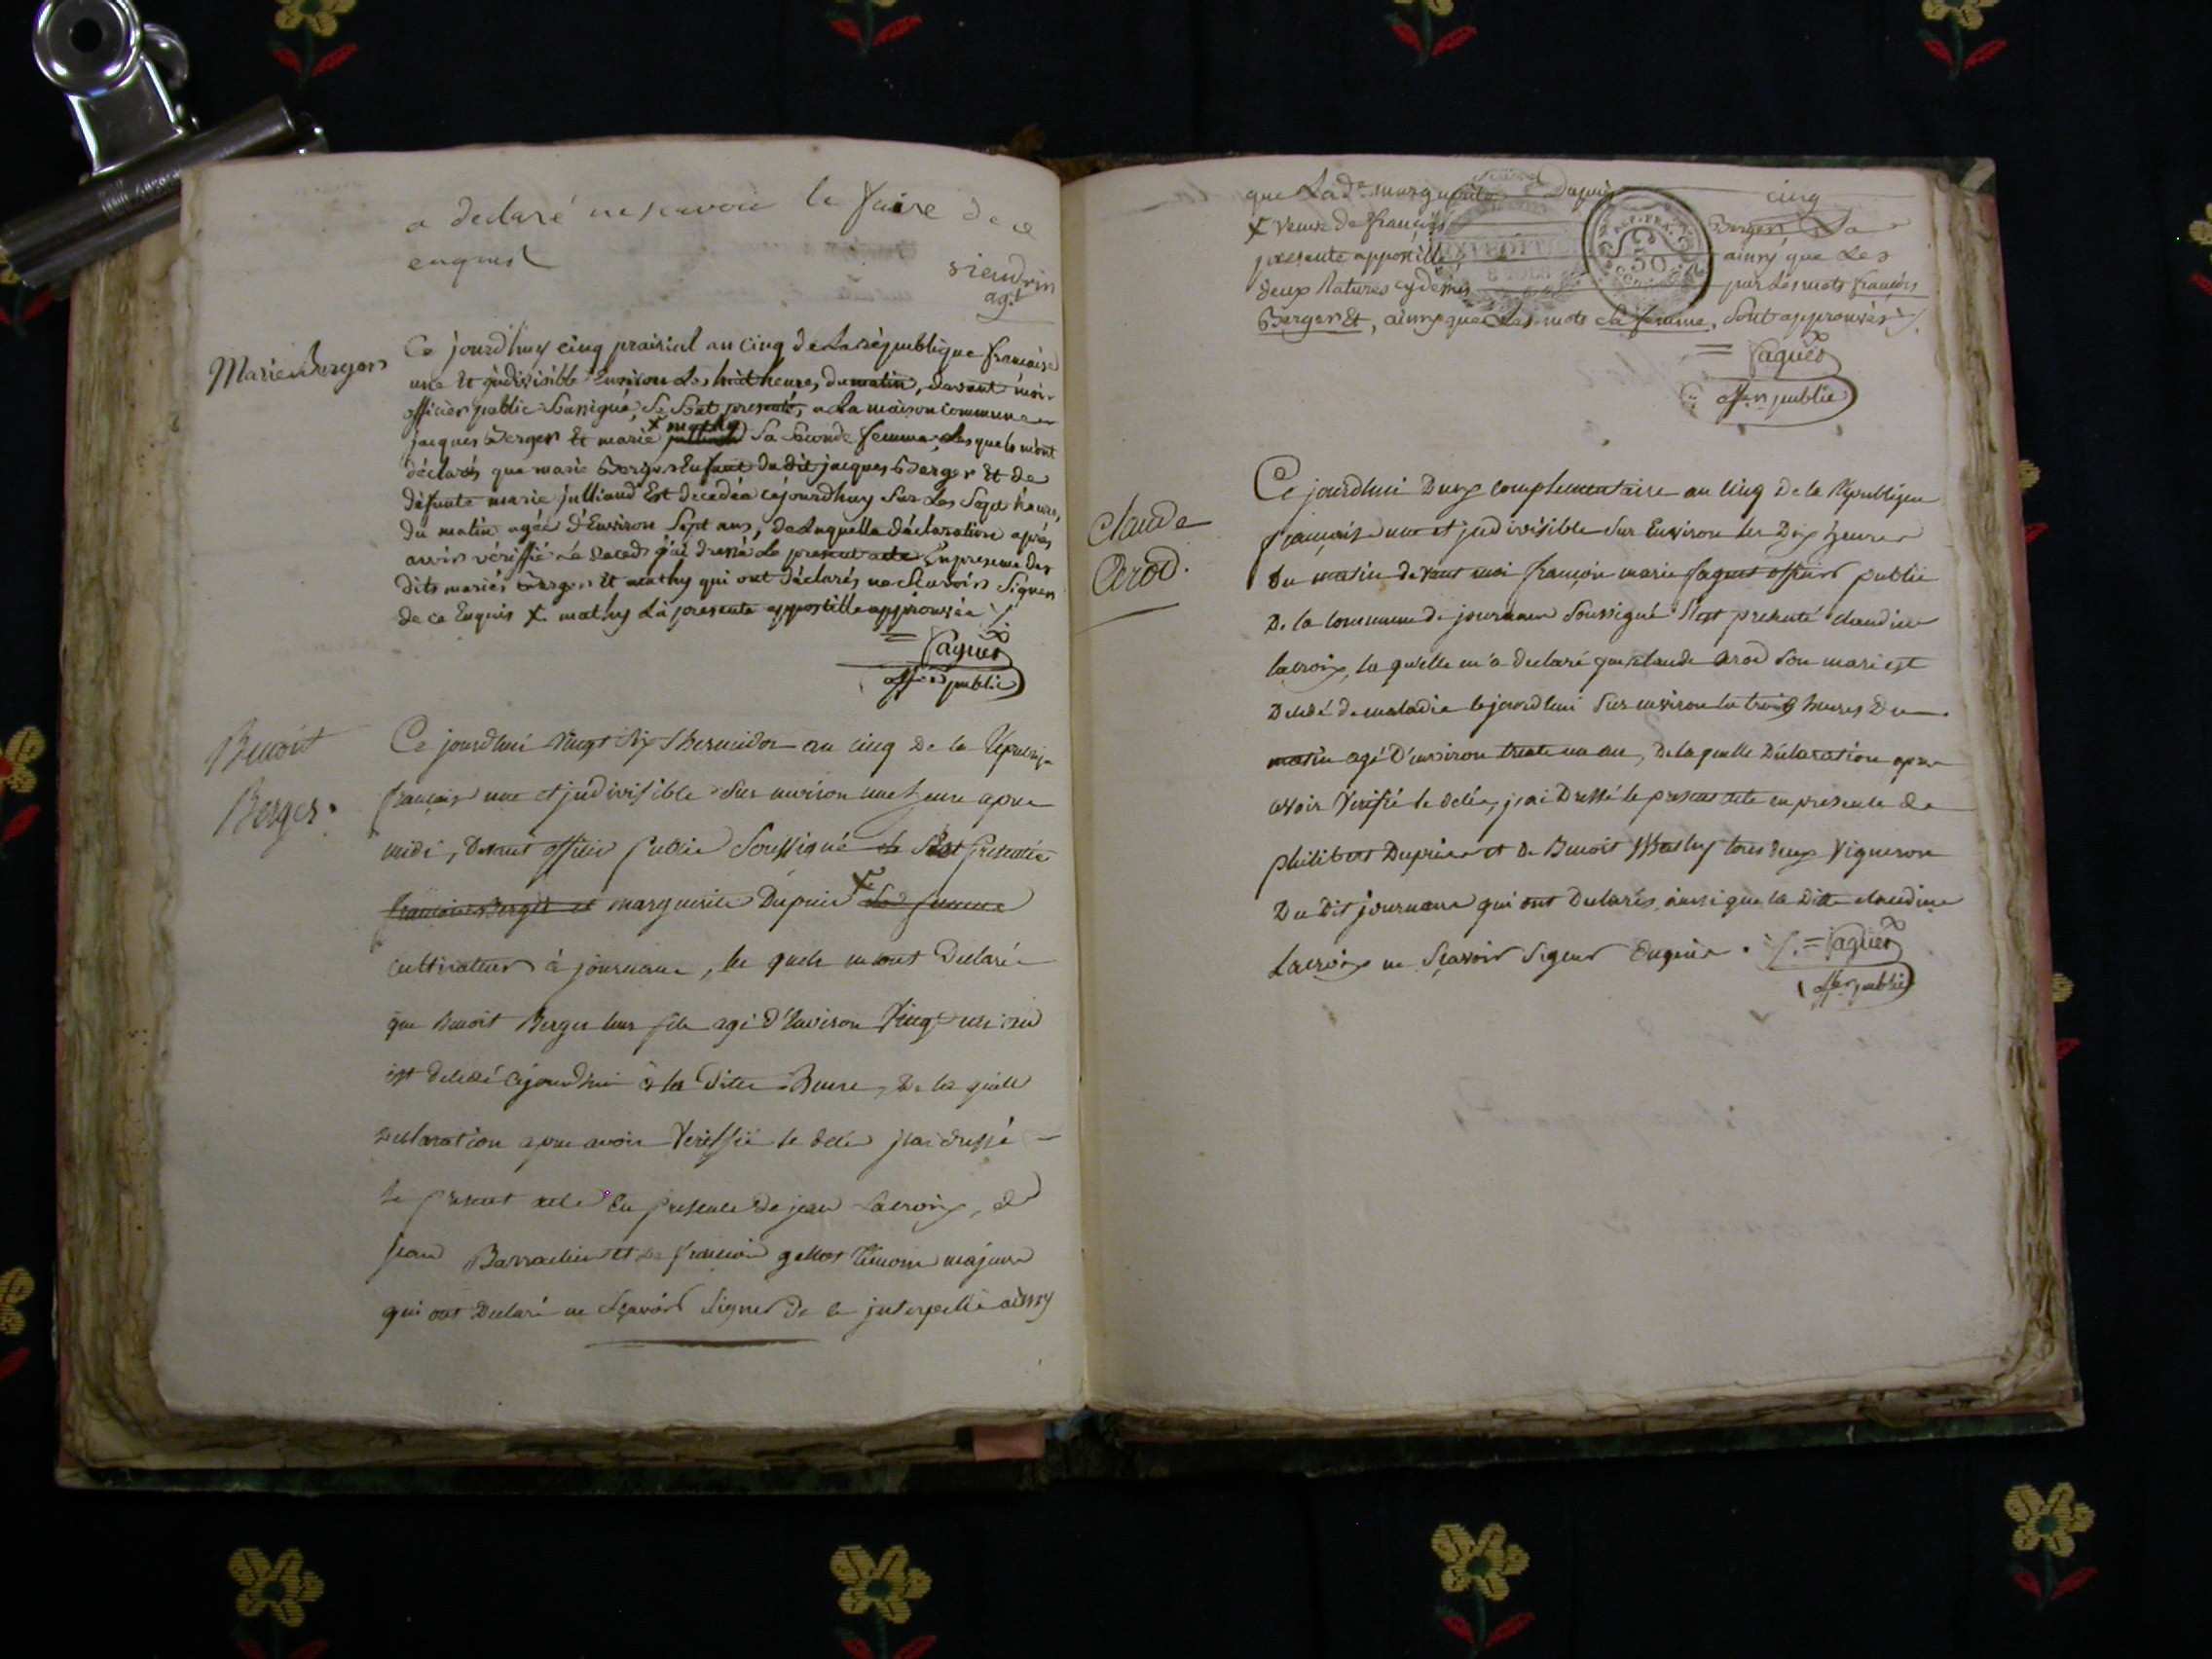 a declaré ne scavoir le faire de ce
enquis
siendrin
agt
Marie Berger
Ce jourd'huy cinq prairial an cinq de La république française
une Et indivisible Environ Les huit heures du matin, devant moi
officier public Soussigné, Se Sont presenté, a La maison commune
jacques Berger Et marie x mathy Sa Seconde femme, Lesquels m'ont
déclarés que marie Berger Enfant du dit jacques Berger Et de
défunte marie julliand Est decedéa cejourdhuy Sur Les Sept heures
du matin agée d'Environ Sept ans, de Laquelle déclaration après
avoir vériffié Le deceds j'ai dressé Le present acte En presence des
dits mariés Berger Et mathy qui ont déclarés ne Scavoir Signer
de ce Enquis x mathy La presente appostille approuvée ./.
= faguet
offer public
Benoit
Berger.
Ce jourdhui vingt six thermidor an cinq de la Républiq
française une et indivisible Sur environ une heure apres
midi, Devant officier public Soussigné Se Sont presentée
françois Berger et marguerite Dupuis x Sa femme
cultivateur à journaux, les quels m'ont Declaré
que Benoit Berger leur fils agé d'Environ vingt un an
est decedé cejourdhui à la ditte heure, De la quelle
declaration apres avoir veriffié le decé j'ai dressé
le present acte En presence de jean Lacroix, de
jean Barraclin et de françois gallos temoins majeurs
qui ont Declaré ne Sçavoir Signer de ce interpellé ainsy
que La de. marguerite Dupuis cinq
x veuve de françois Berger La
presente appostille ainsy que Les
deux Ratures cy dessus par Les mots françois
Berger Et, ainsy que Les mots Sa femme, Sont approuvés ./.
= faguet
offer public
Claude
Arod.
Ce jourdhui Deux complementaire an cinq De la République
française une et indivisible Sur Environ les Dix heures
Du matin devant moi françois marie faguet officier public
De la commune de journaux Soussigné S'est presenté claudine
lacroix, la qu'elle m'a declaré que claude arod Son mari est
Decedé de maladie cejourdhui Sur environ les trois heures Du
matin agé D'environ trente un an, De la quelle Déclaration apres
avoir verifié le decée, j'ai Dressé le present acte en presence de
philibert Duprier et De Benoit Mathy tous deux vigneron
Du Dit journaux qui ont Declarés, ainsi que la Ditte claudine
Lacroix ne Sçavoir Signer Enquis. ./. = faguet
offer public